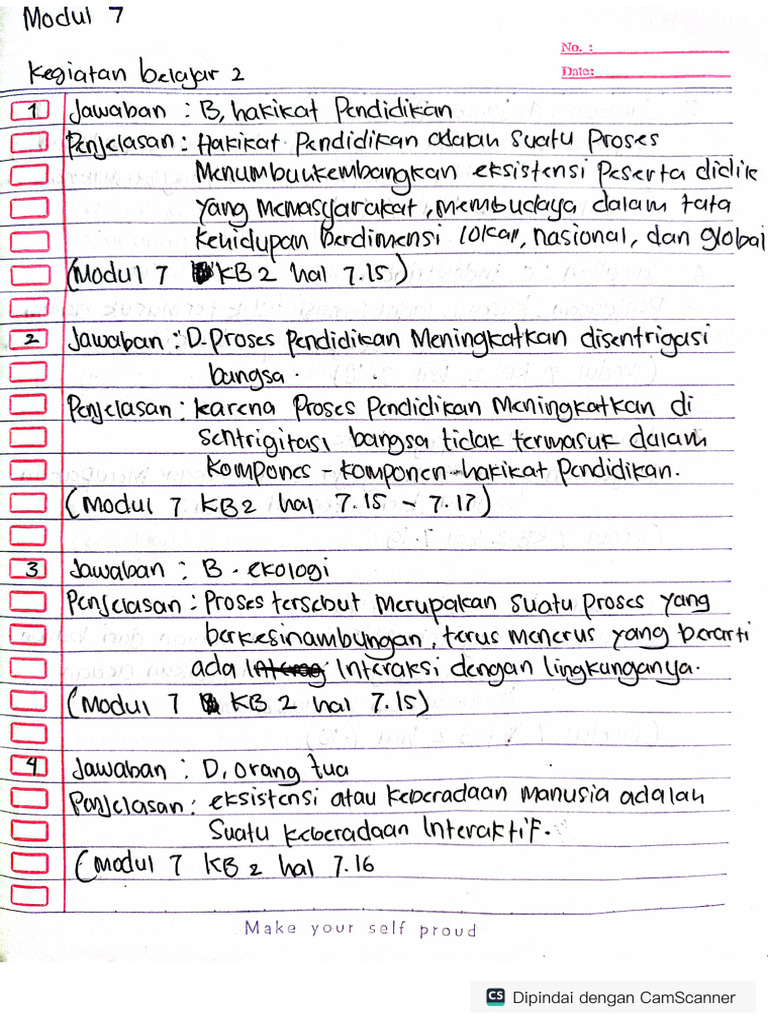 Modul 7
No. :
Kegiatan belajar 2
Date:
1 Jawaban : B, hakikat Pendidikan
Penjelasan : Hakikat Pendidikan adalah suatu Proses
Menumbuhkembangkan eksistensi Peserta didik
yang memasyarakat, membudaya dalam tata
Kehidupan Berdimensi lokal, nasional, dan global
(Modul 7 KB 2 hal 7.15)
2 Jawaban : D. Proses Pendidikan Meningkatkan disentrigasi
bangsa.
Penjelasan : karena Proses Pendidikan Meningkatkan di
sentrigitasi bangsa tidak termasuk dalam
Kompones - komponen hakikat Pendidikan.
(Modul 7 KB 2 hal 7.15 - 7.17)
3 Jawaban : B. ekologi
Penjelasan : Proses tersebut Merupakan Suatu Proses yang
berkesinambungan, terus menerus yang berarti
ada Interaksi dengan lingkunganya.
(Modul 7 KB 2 hal 7.15)
4 Jawaban : D, orang tua
Penjelasan : eksistensi atau Keberadaan Manusia adalah
Suatu keberadaan Interaktif.
(Modul 7 KB 2 hal 7.16
Make your self proud
CS Dipindai dengan CamScanner